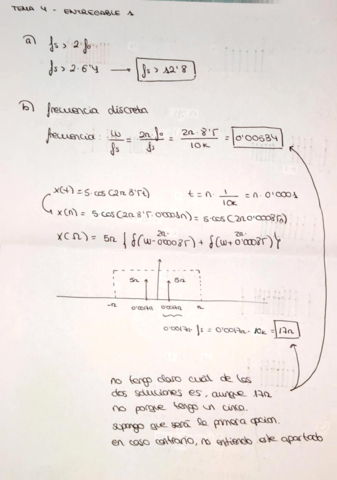 TEMA 4 - ENTREGABLE 1
a) fs > 2·f0
fs > 2·6'4 → fs > 12'8
b) frecuencia discreta
frecuencia: w/fs = 2π·f0/fs = 2π·8'5/10k = 0'00534
x(t) = 5·cos(2π8'5t) t = n·1/10k = n·0'0001
x(n) = 5·cos(2π8'5·0'0001n) = 5·cos(2π0'00085n)
X(Ω) = 5π {δ(w-2π·0'00085) + δ(w+2π·0'00085)}
5π 5π
-π 0'0017π 0'0017π π
0'0017π·fs = 0'0017π·10k = 17π
no tengo claro cuál de las
dos soluciones es, aunque 17π
no porque tengo un cinco.
supongo que será la primera opcion.
en caso contrario, no entiendo este apartado